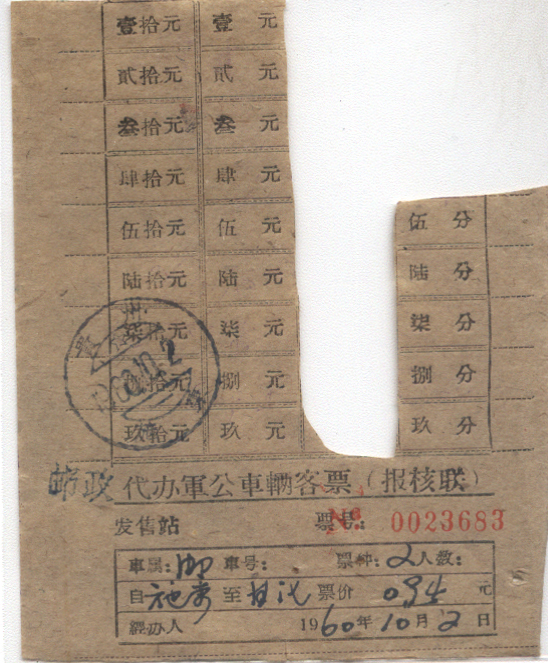 壹拾元 壹 元
贰拾元 贰 元
叁拾元 叁 元
肆拾元 肆 元
伍拾元 伍 元 伍 分
陆拾元 陆 元 陆 分
柒拾元 柒 元 柒 分
捌拾元 捌 元 捌 分
玖拾元 玖 元 玖 分
州
1960.10.2
邮政 代办軍公車輛客票（报核联）
发售站 票号： № 0023683
車属：邮 車号： 票种：2 人数：
自 施秉 至 甘 票价 元
經办人 1960年10月2日